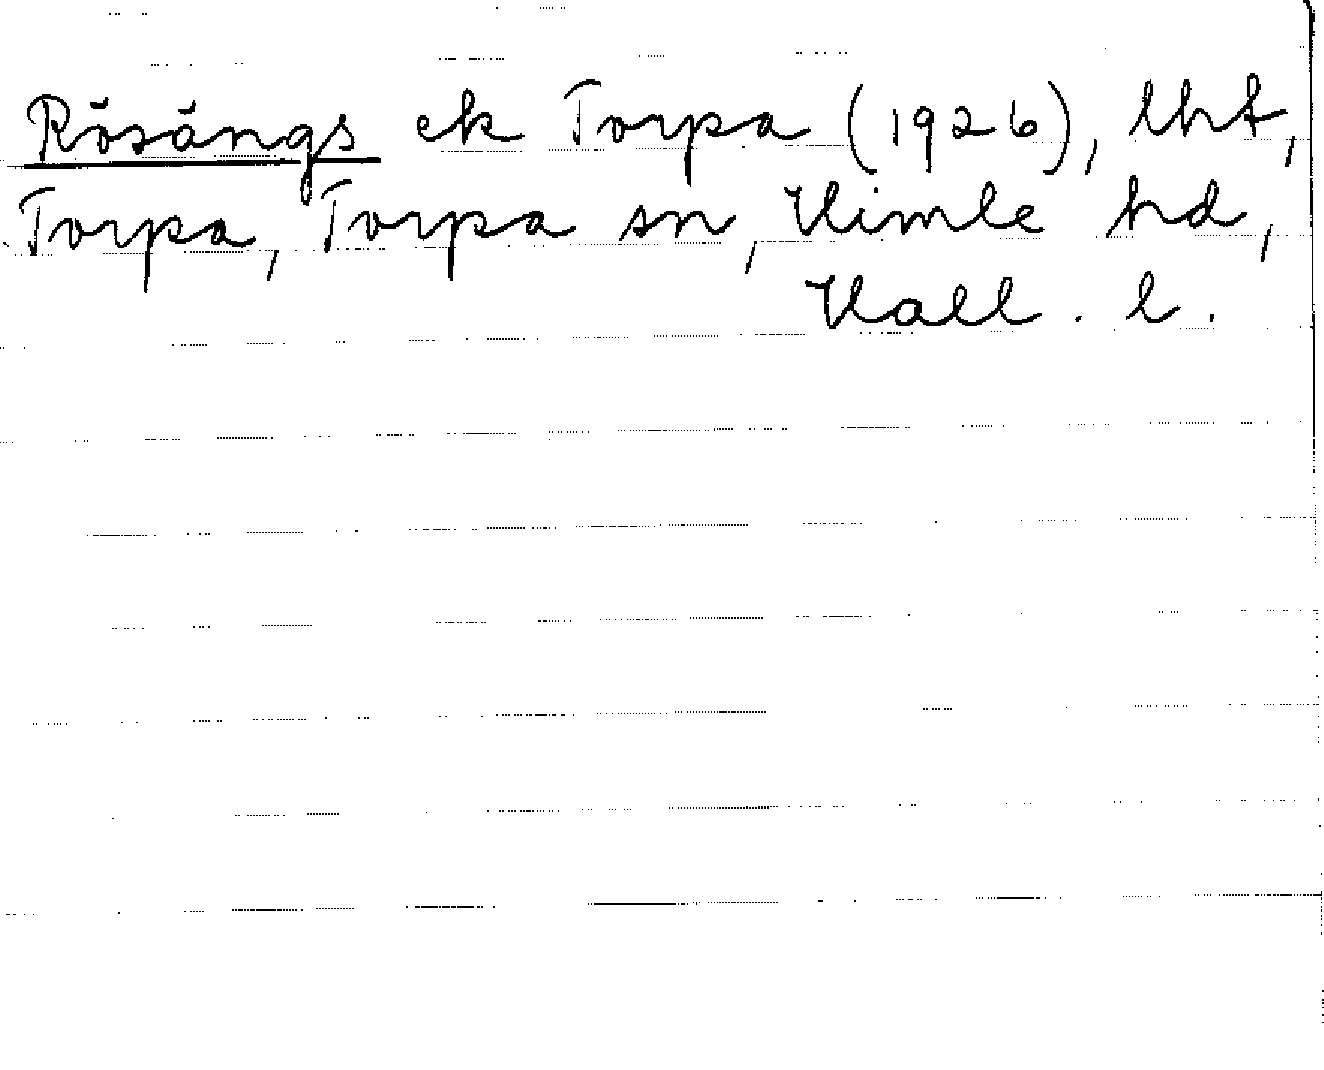 Rösängs ek Torpa (1926), lht,
Torpa, Torpa sn, Himle hd,
Hall. l.